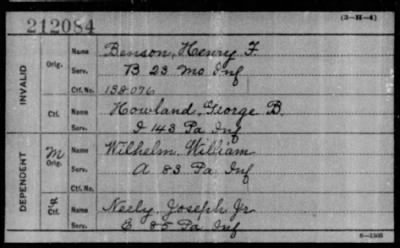 212084 (3-H-4)
INVALID
Orig. Name Benson, Henry F.
Serv. B 23 Mo Inf
Ctf. No. 138.076
Ctf. Name Howland, George B.
Serv. I 143 Pa Inf
DEPENDENT
M Orig. Name Wilhelm, William
Serv. A 83 Pa Inf
Ctf. No.
Ctf. Name Neely, Joseph Jr
Serv. E 85 Pa Inf